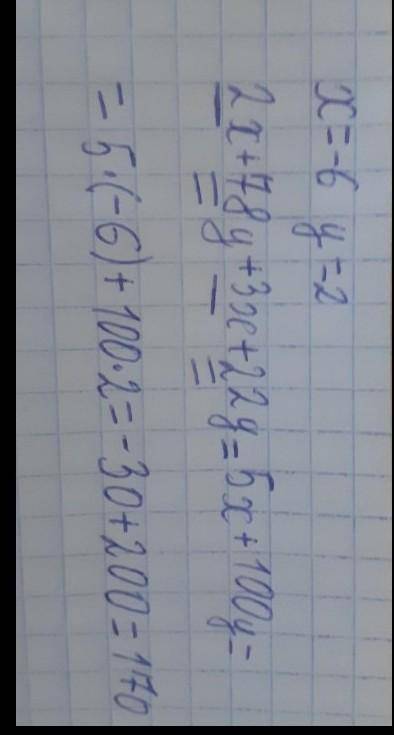 x=-6 y=2
2x+78y+3x+22y=5x+100y=
=5·(-6)+100·2=-30+200=170